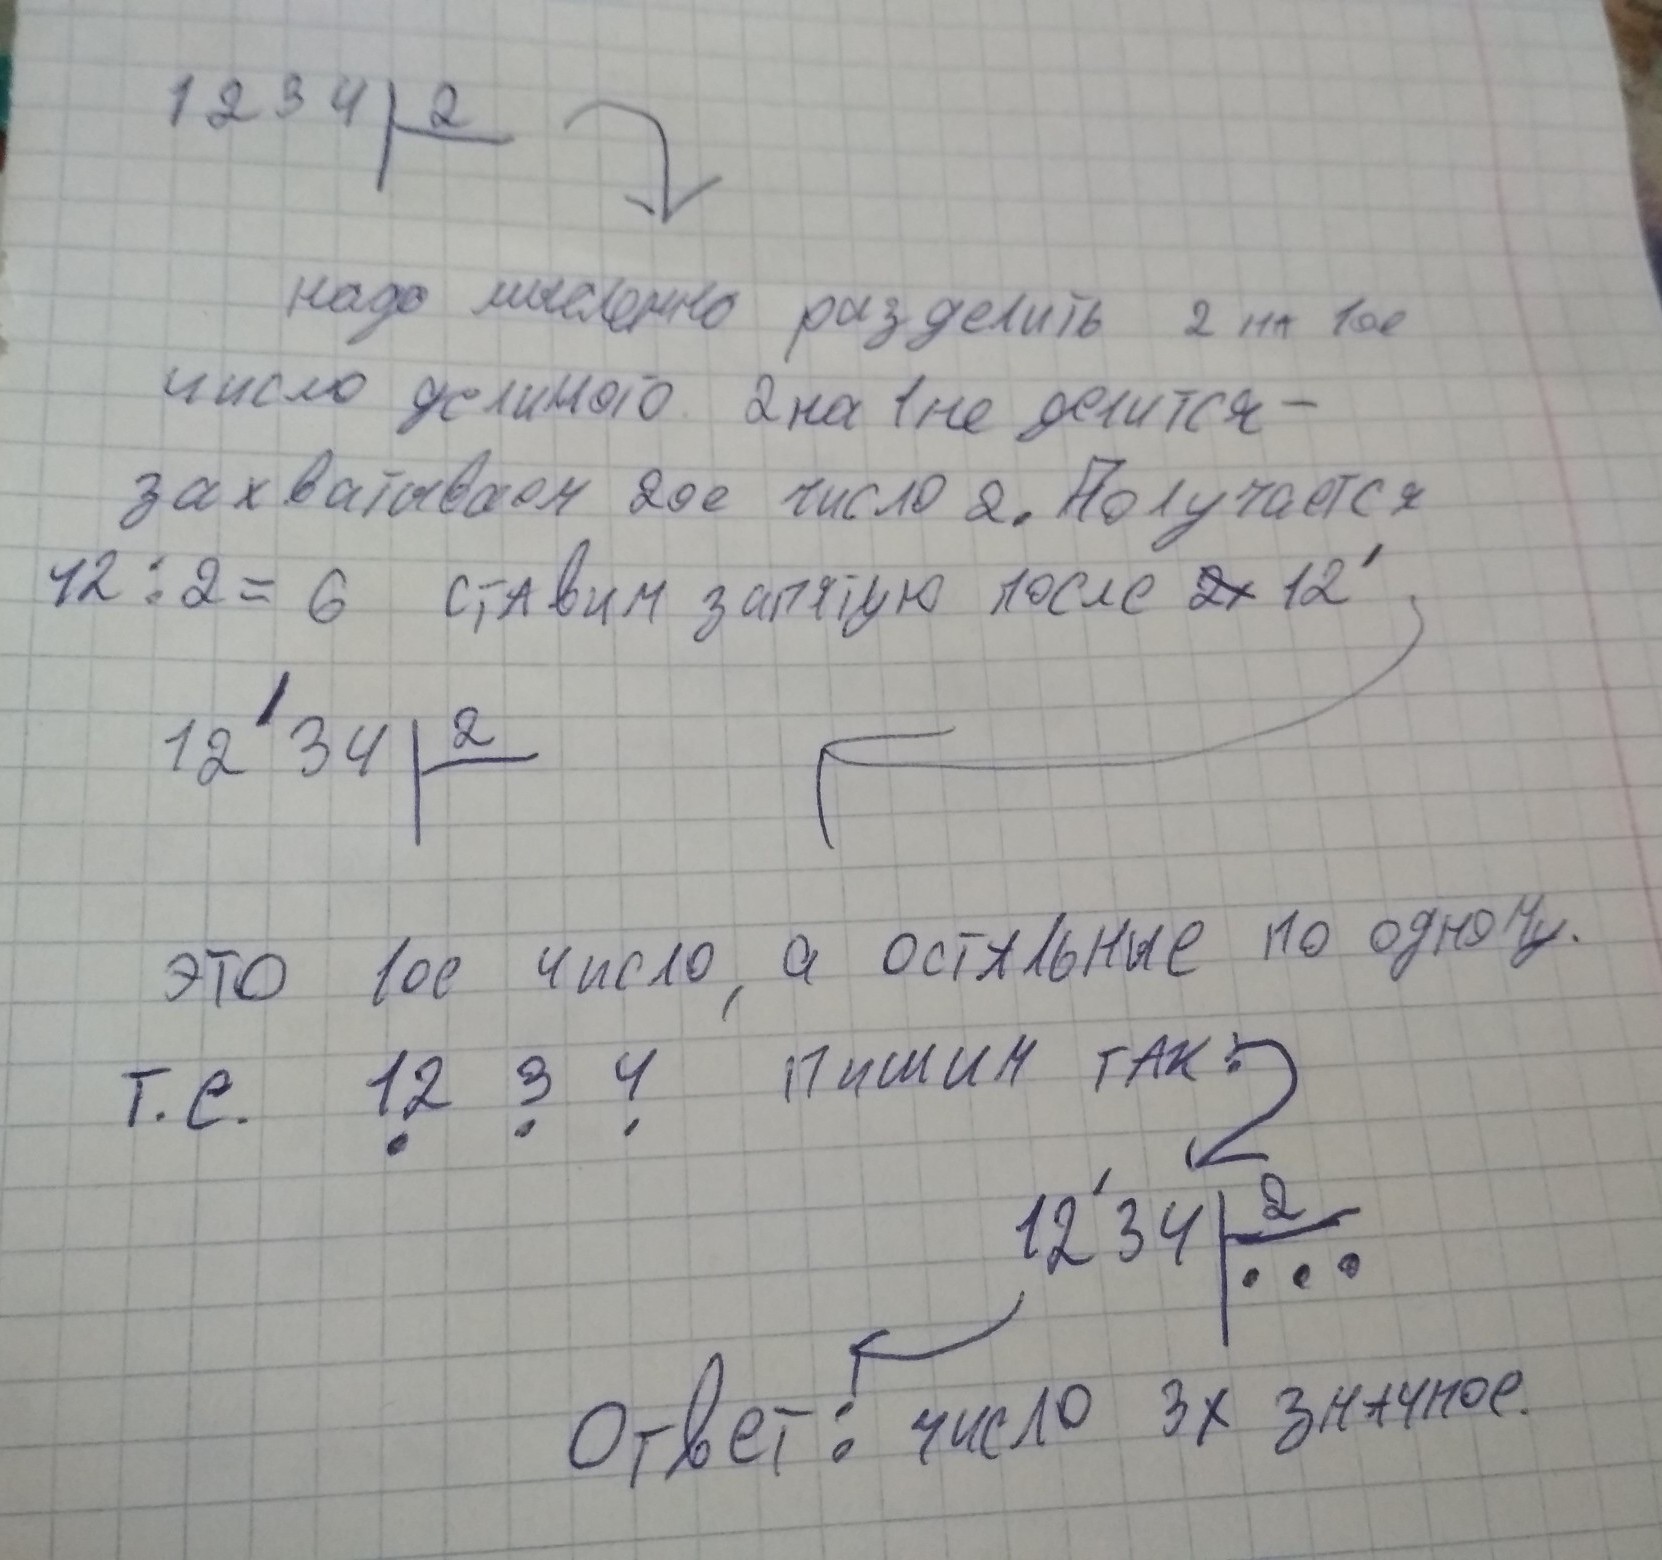 1234 2
надо мысленно разделить 2 на 1ое
число делимого. 2 на 1 не делится -
захватываем 2ое число 2. Получается
12 : 2 = 6 ставим запятую после 12'
12'34 2
это 1ое число, а остальные по одному.
т.е. 12 3 4 пишим так:
12'34 2
. . .
Ответ: число 3х значное.